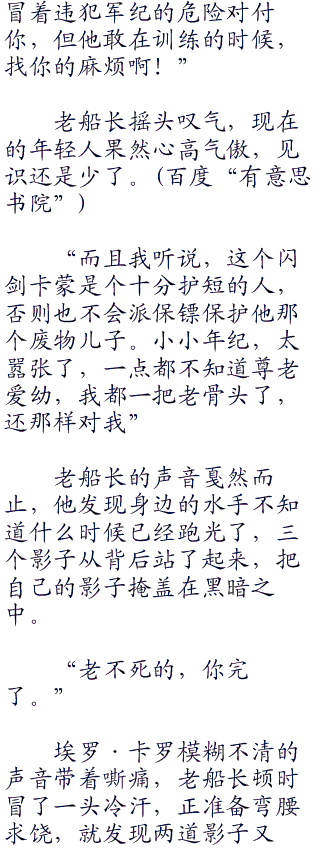 冒着违犯军纪的危险对付
你，但他敢在训练的时候，
找你的麻烦啊！”
老船长摇头叹气，现在
的年轻人果然心高气傲，见
识还是少了。(百度“有意思
书院”)
“而且我听说，这个闪
剑卡蒙是个十分护短的人，
否则也不会派保镖保护他那
个废物儿子。小小年纪，太
嚣张了，一点都不知道尊老
爱幼，我都一把老骨头了，
还那样对我”
老船长的声音戛然而
止，他发现身边的水手不知
道什么时候已经跑光了，三
个影子从背后站了起来，把
自己的影子掩盖在黑暗之
中。
“老不死的，你完
了。”
埃罗·卡罗模糊不清的
声音带着嘶痛，老船长顿时
冒了一头冷汗，正准备弯腰
求饶，就发现两道影子又